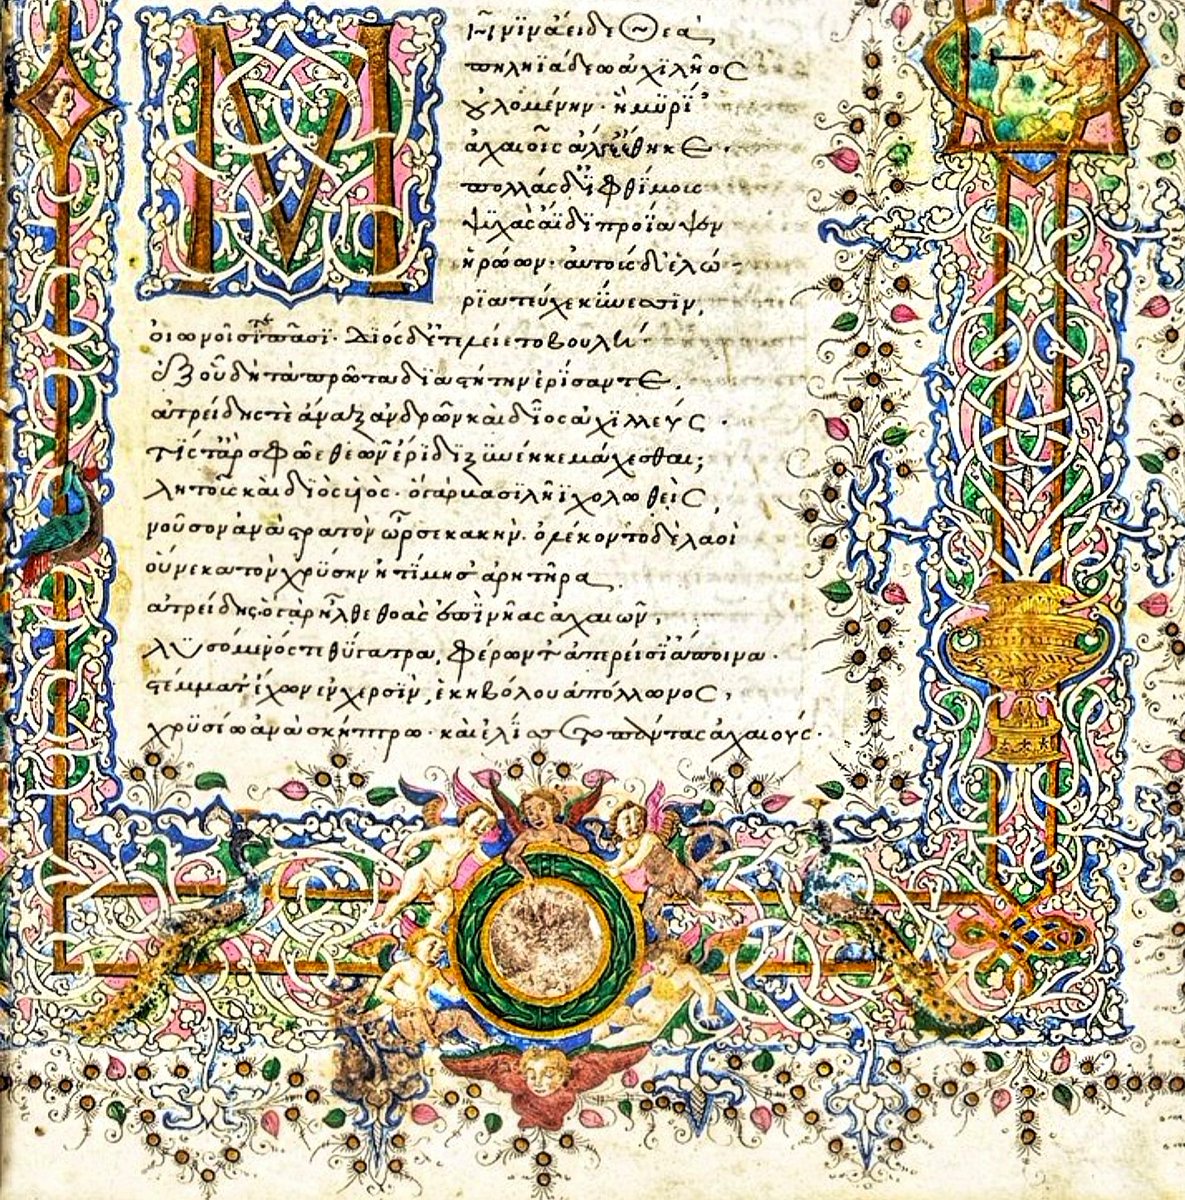 Μῆνιν ἄειδε Θεὰ
πηληϊάδεω ἀχιλῆος
οὐλομένην· ἣ μυρί᾽
ἀχαιοῖς ἄλγε᾽ ἔθηκε·
πολλὰς δ᾽ ἰφθίμους
ψυχὰς ἄϊδι προΐαψεν
ἡρώων· αὐτοὺς δ᾽ ἑλώ-
ρια τεύχε κύνεσσιν,
οἰωνοῖσί τε πᾶσι· Διὸς δ᾽ ἐτελείετο βουλή·
ἐξ οὗ δὴ τὰ πρῶτα διαστήτην ἐρίσαντε.
ἀτρείδης τὲ ἄναξ ἀνδρῶν καὶ δῖος ἀχιλλεύς·
τίς τάρ σφῶε θεῶν ἔριδι ξυνέηκε μάχεσθαι;
λητοῦς καὶ διὸς υἱός· ὁ γὰρ βασιλῆϊ χολωθεὶς,
νοῦσον ἀνὰ στρατὸν ὦρσε κακὴν. ὀλέκοντο δὲ λαοὶ
οὕνεκα τὸν χρύσην ἠτίμησ᾽ ἀρητῆρα,
ἀτρείδης. ὁ γὰρ ἦλθε θοὰς ἐπὶ νῆας ἀχαιῶν,
λυσόμενός τε θύγατρα, φέρων τ᾽ ἀπερείσι᾽ ἄποινα·
στέμματ᾽ ἔχων ἐν χερσὶν, ἑκηβόλου ἀπόλλωνος,
χρυσέω ἀνὰ σκήπτρω· καὶ ἐλίσσετο πάντας ἀχαιούς·